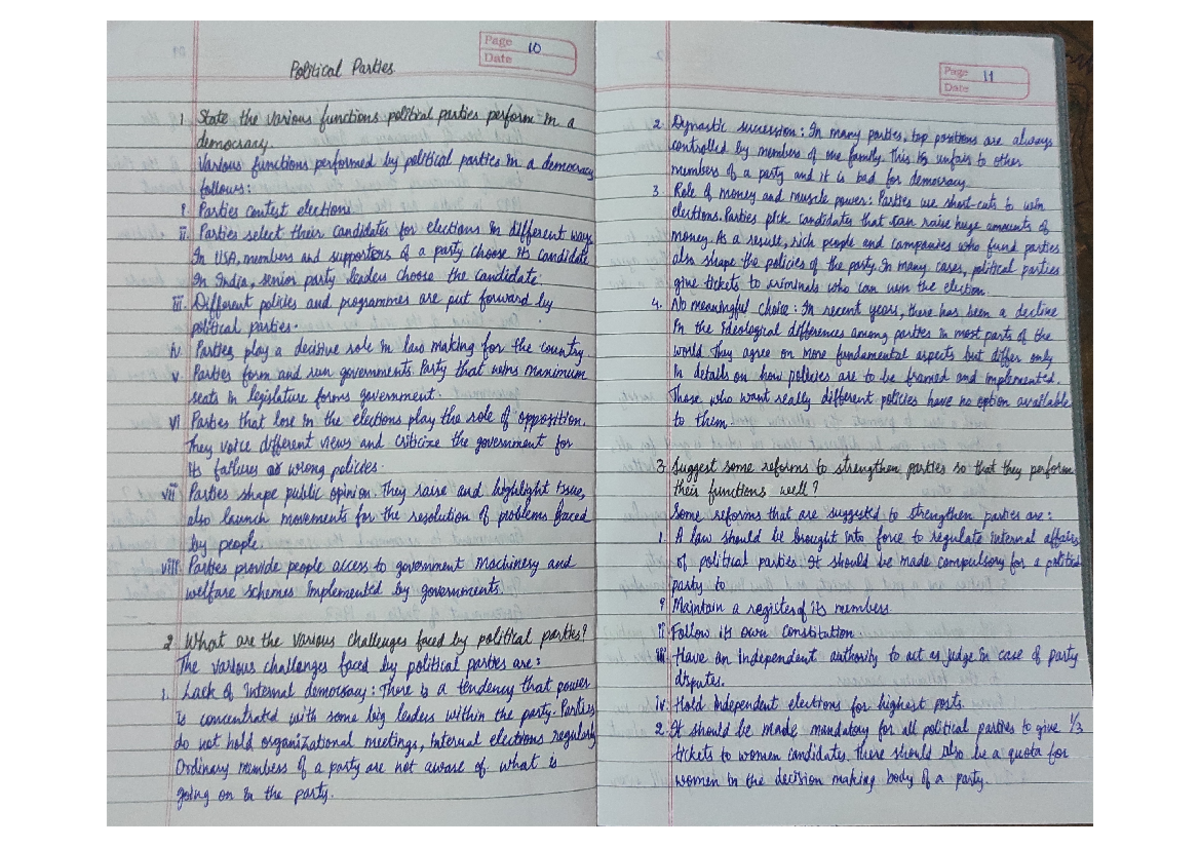 Page 10
Date
Political Parties
1. State the various functions political parties perform in a
democracy.
Various functions performed by political parties in a democracy
follows:
i. Parties contest elections
ii. Parties select their candidates for elections in different ways
In USA, members and supporters of a party choose its candidate
In India, senior party leaders choose the candidate.
iii. Different policies and programmes are put forward by
political parties.
iv. Parties play a decisive role in law making for the country.
v. Parties form and run governments. Party that wins maximum
seats in legislature forms government.
vi Parties that lose in the elections play the role of opposition.
They voice different views and criticize the government for
its failures or wrong policies.
vii Parties shape public opinion. They raise and highlight issue,
also launch movements for the resolution of problems faced
by people.
viii. Parties provide people access to government machinery and
welfare schemes implemented by governments.
2. What are the various challenges faced by political parties?
The various challenges faced by political parties are:
1. Lack of Internal democracy: There is a tendency that power
is concentrated with some big leaders within the party. Parties
do not hold organizational meetings, internal elections regularly
Ordinary members of a party are not aware of what is
going on in the party.
Page 11
Date
2. Dynastic succession: In many parties, top positions are always
controlled by members of one family. This is unfair to other
members of a party and it is bad for democracy.
3. Role of money and muscle power: Parties use short-cuts to win
elections. Parties pick candidates that can raise huge amounts of
money. As a result, rich people and companies who fund parties
also shape the policies of the party. In many cases, political parties
give tickets to criminals who can win the election.
4. No meaningful choice: In recent years, there has been a decline
in the ideological differences among parties in most parts of the
world. They agree on more fundamental aspects but differ only
in details on how policies are to be framed and implemented.
Those who want really different policies have no option available
to them.
3. Suggest some reforms to strengthen parties so that they perform
their functions well?
Some reforms that are suggested to strengthen parties are:
1. A law should be brought into force to regulate internal affairs
of political parties. It should be made compulsory for a political
party to
i Maintain a register of its members.
ii Follow its own constitution.
iii Have an independent authority to act as judge in case of party
disputes.
iv. Hold independent elections for highest posts.
2. It should be made mandatory for all political parties to give 1/3
tickets to women candidates. There should also be a quota for
women in the decision making body of a party.